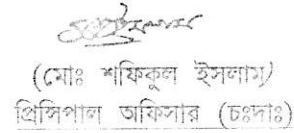 (মোঃ শফিকুল ইসলাম)
প্রিন্সিপাল অফিসার (চঃদাঃ)